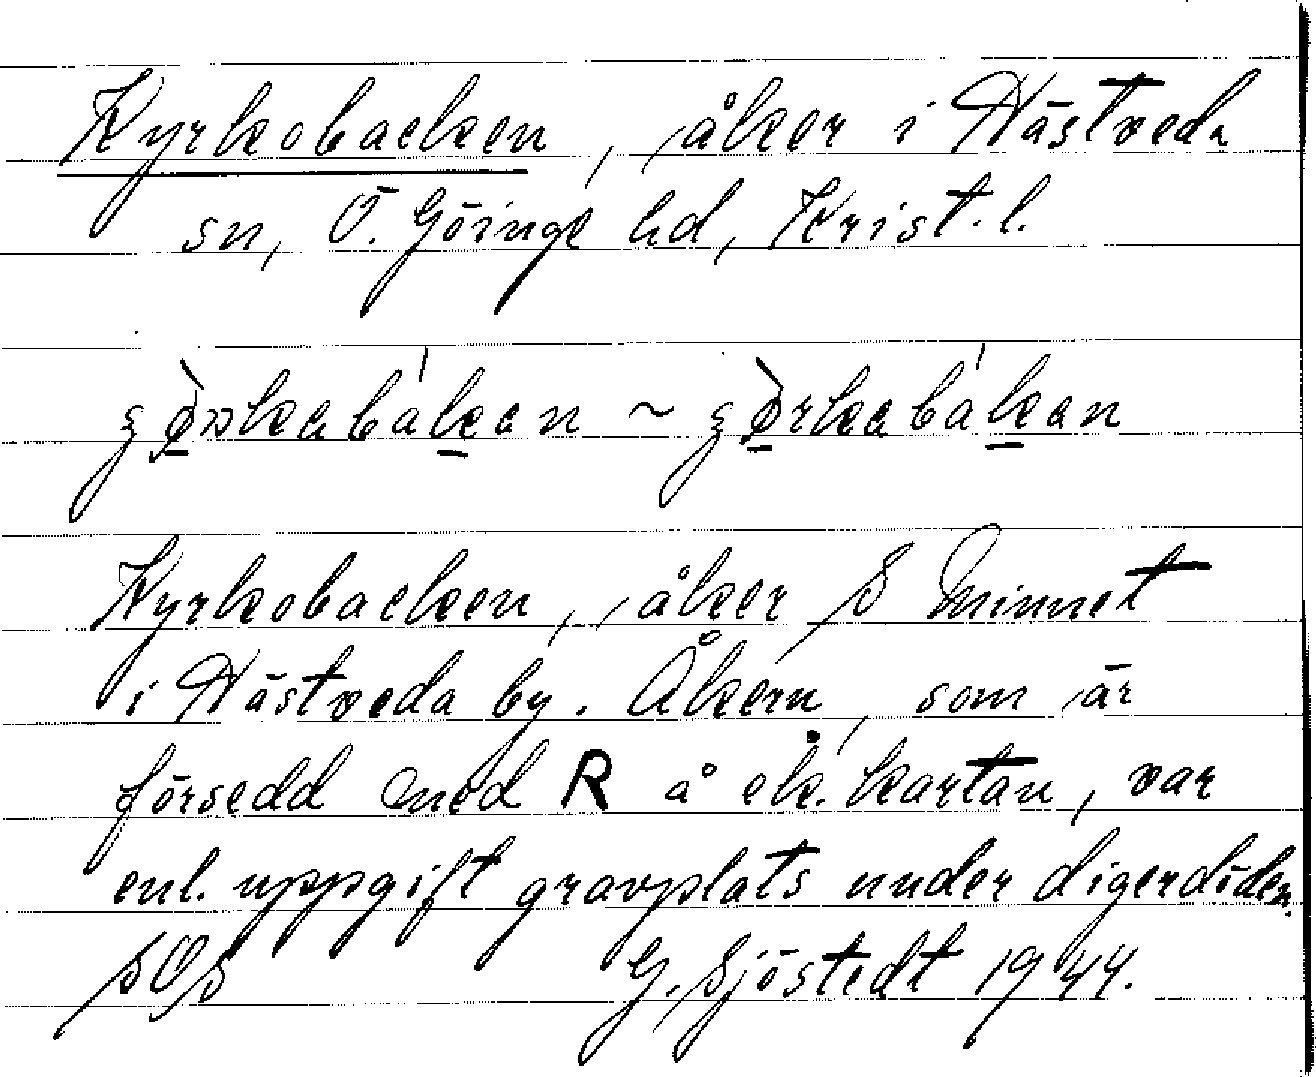 Kyrkobacken, åker i Hästveda
sn, Ö. Göinge hd, Krist. l.
Kyrkobacken, åker S Minnet
i Hästveda by. Åkern, som är
försedd med R å ek. kartan, var
enl. uppgift gravplats under digerdöden.
SOS G. Sjöstedt 1944.